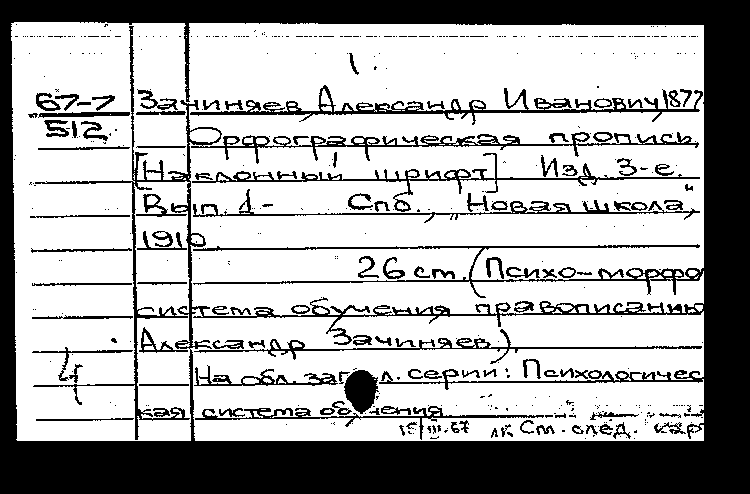 1.
67-7 Зачиняев, Александр Иванович, 1877
512. Орфографическая пропись.
[Наклонный шрифт]. Изд. 3-е.
Вып. 1- Спб., „Новая школа",
1910.
26 cm. (Психо-морфо
система обучения правописанию
Александр Зачиняев).
4 На обл. загл. серии: Психологичес
кая система обучения
15/III.67 См. след. кар